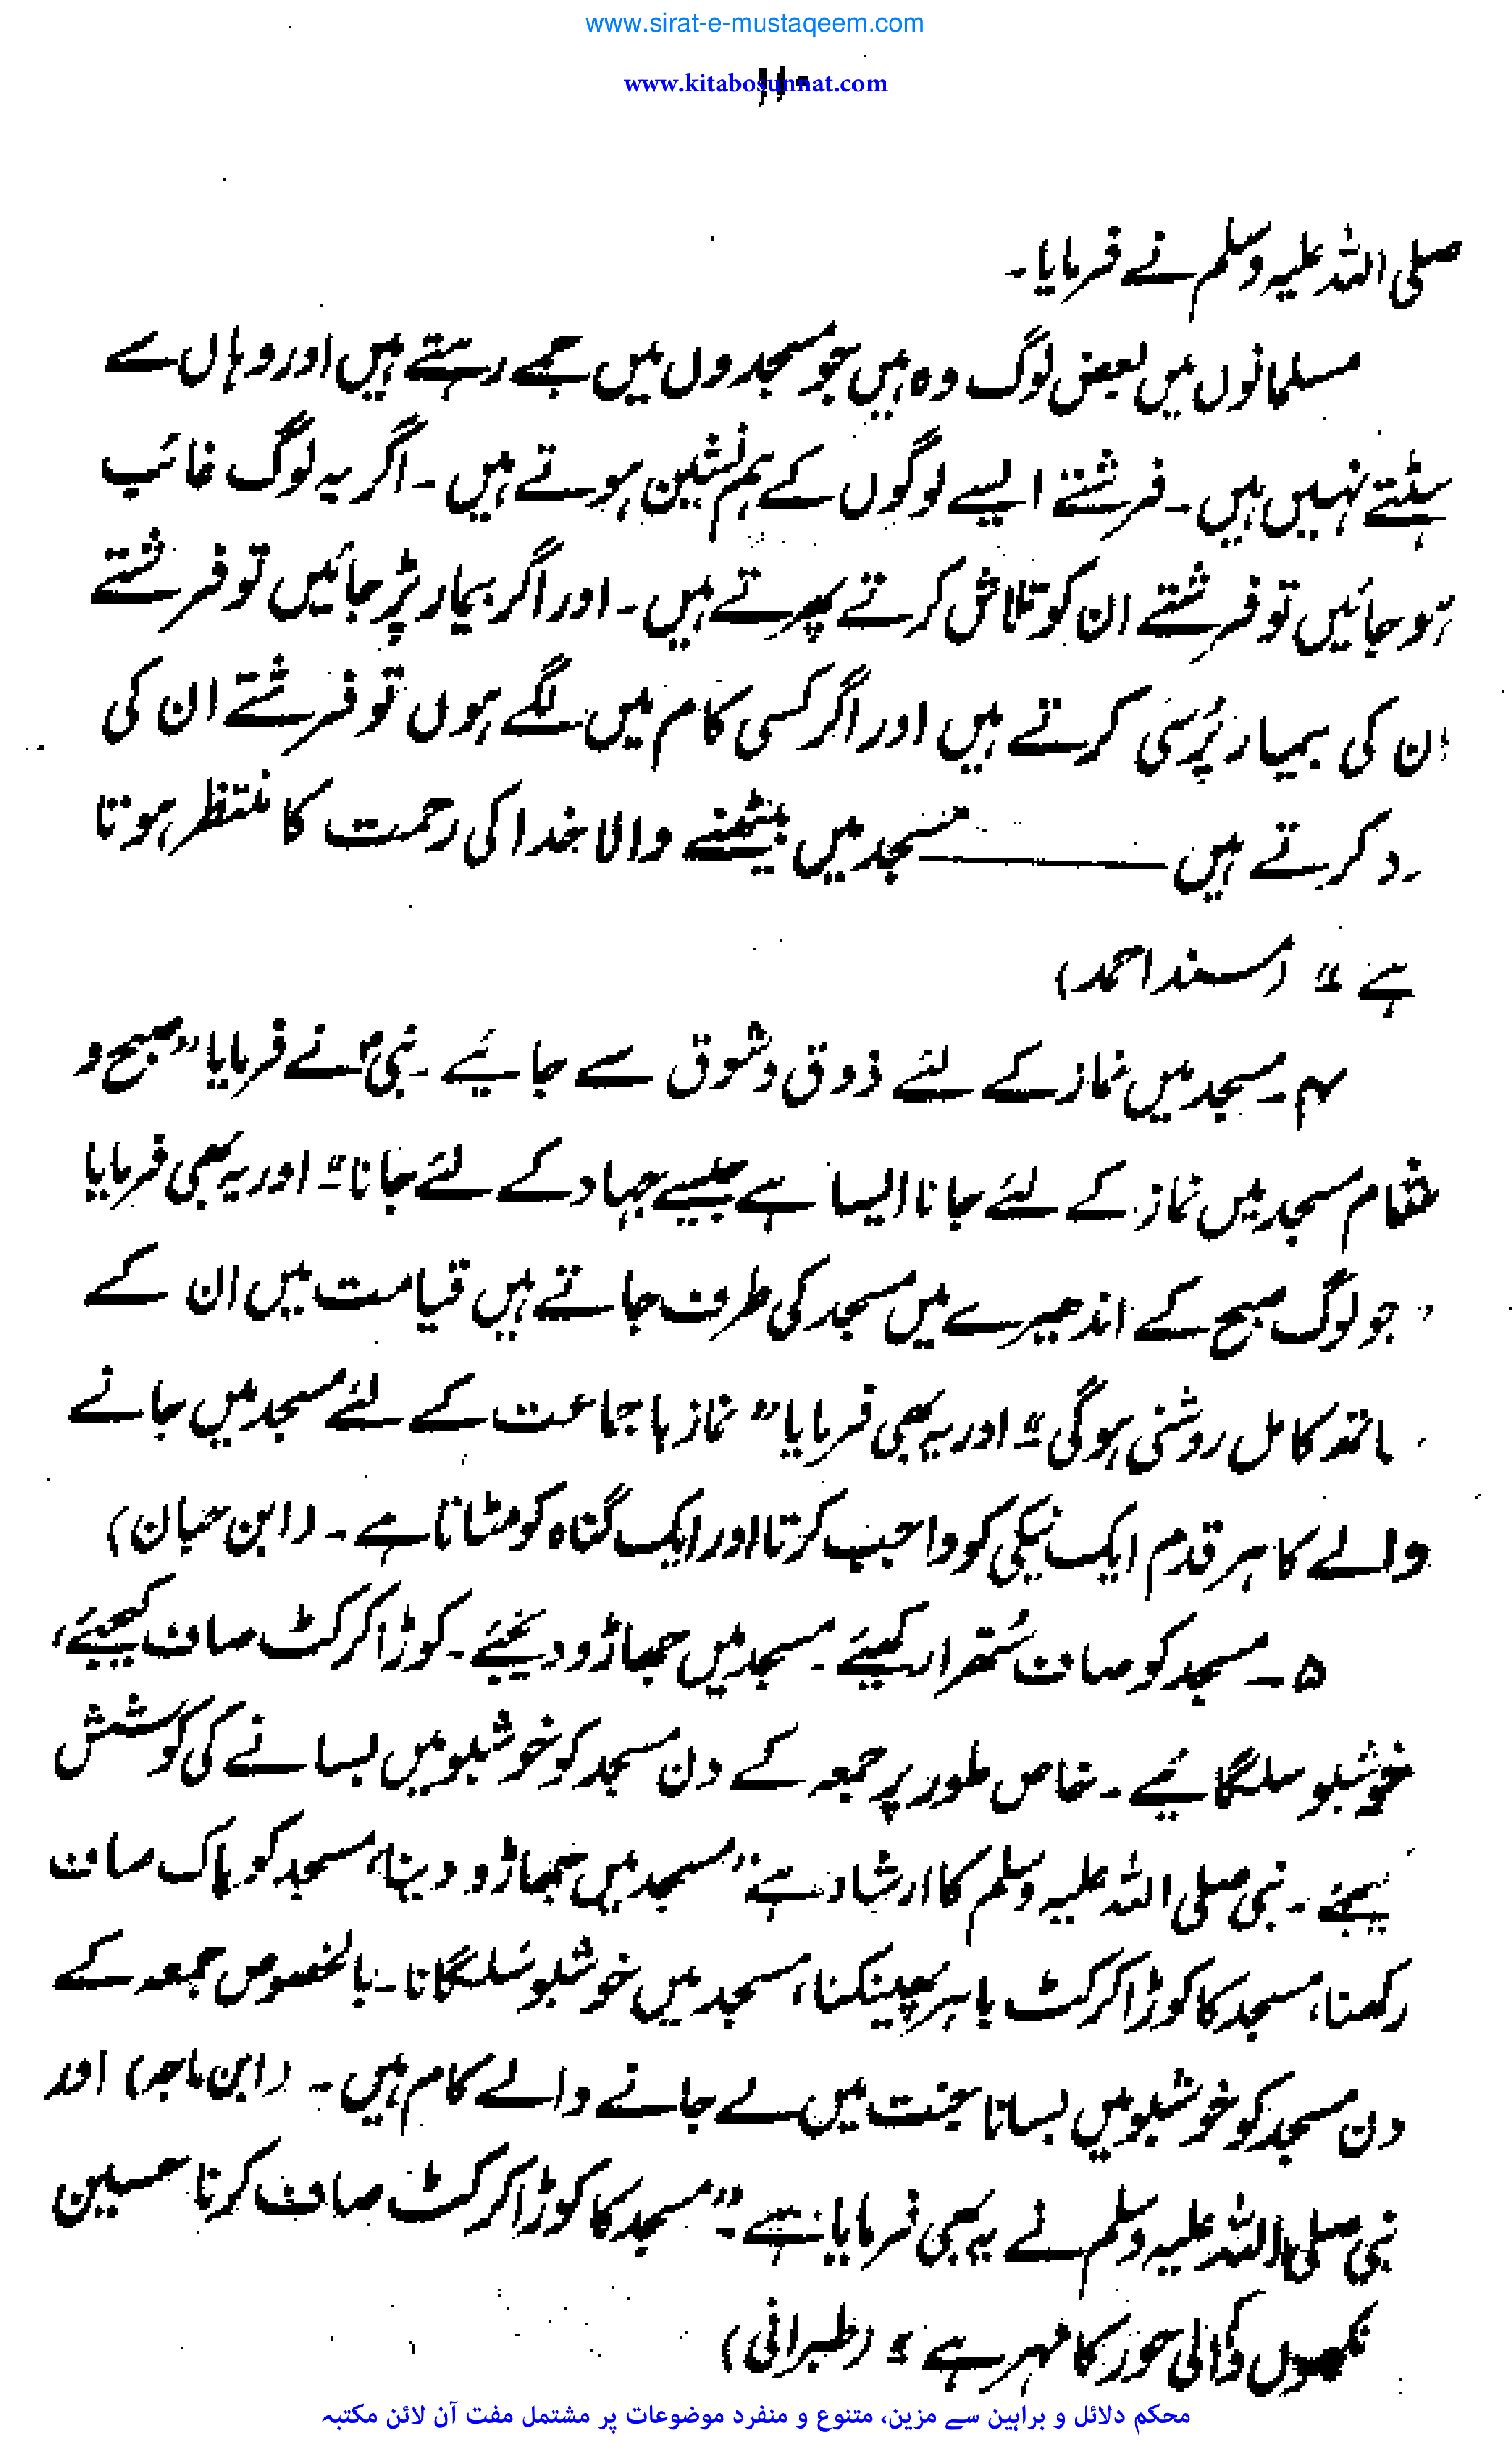 www.sirat-e-mustaqeem.com
www.kitabosunnat.com
۱۱۰
صلی اللہ علیہ وسلم نے فرمایا۔
مسلمانوں میں بعض لوگ وہ ہیں جو مسجدوں میں جمے رہتے ہیں اور وہاں سے
ہٹتے نہیں ہیں۔ فرشتے ایسے لوگوں کے ہم نشین ہوتے ہیں۔ اگر یہ لوگ غائب
ہو جائیں تو فرشتے ان کو تلاش کرتے پھرتے ہیں۔ اور اگر بیمار پڑ جائیں تو فرشتے
ان کی بیمار پُرسی کرتے ہیں اور اگر کسی کام میں لگے ہوں تو فرشتے ان کی
د کرتے ہیں ——— مسجد میں بیٹھنے والا خدا کی رحمت کا منتظر ہوتا
ہے" (مسند احمد)
۴۔ مسجد میں نماز کے لئے ذوق و شوق سے جائیے۔ نبیؐ نے فرمایا "صبح و
شام مسجد میں نماز کے لئے جانا ایسا ہے جیسے جہاد کے لئے جانا" اور یہ بھی فرمایا
" جو لوگ صبح کے اندھیرے میں مسجد کی طرف جاتے ہیں قیامت میں ان کے
اتھ کامل روشنی ہوگی" اور یہ بھی فرمایا "نماز با جماعت کے لئے مسجد میں جانے
والے کا ہر قدم ایک نیکی کو واجب کرتا اور ایک گناہ کو مٹاتا ہے۔ (ابن حبان)
۵۔ مسجد کو صاف سُتھرا رکھیئے۔ مسجد میں جھاڑو دیجئے۔ کوڑا کرکٹ صاف کیجیئے،
خوشبو سلگائیے۔ خاص طور پر جمعہ کے دن مسجد کو خوشبو میں بسانے کی کوشش
یجئے۔ نبی صلی اللہ علیہ وسلم کا ارشاد ہے "مسجد میں جھاڑو دینا، مسجد کو پاک صاف
رکھنا، مسجد کا کوڑا کرکٹ باہر پھینکنا، مسجد میں خوشبو سُلگانا۔ بالخصوص جمعہ کے
دن مسجد کو خوشبو میں بسانا جنت میں لے جانے والے کام ہیں۔ (ابن ماجہ) اور
نبی صلی اللہ علیہ وسلم نے یہ بھی فرمایا ہے۔ "مسجد کا کوڑا کرکٹ صاف کرنا حسین
نکھوں والی حور کا مہر ہے" (طبرانی)
محکم دلائل و براہین سے مزین، متنوع و منفرد موضوعات پر مشتمل مفت آن لائن مکتبہ